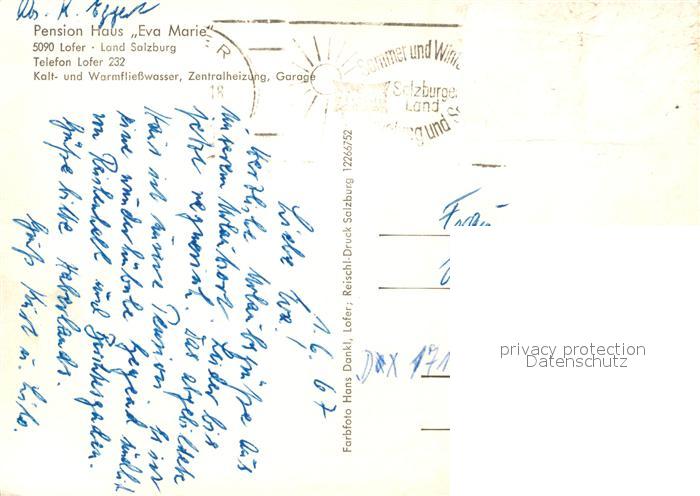 Abs. K. Eggert
Pension Haus „Eva Marie"
5090 Lofer · Land Salzburg
Telefon Lofer 232
Kalt- und Warmfließwasser, Zentralheizung, Garage
R
18
Sommer und Winter
Salzburger
Land
1.6.67
Liebe Eva!
Herzliche Urlaubsgrüße aus
unserem Urlaubsort. Leider bis
jetzt regnerisch. Das abgebildete
Haus ist unsere Pension. Es ist
eine wunderhübsche Gegend südlich
von Reichenhall und Berchtesgaden.
Grüße bitte Haberlands.
Gruß Kurt u. Lilo.
Farbfoto Hans Dankl, Lofer; Reischl-Druck Salzburg 12266752
Frau
171
privacy protection
Datenschutz